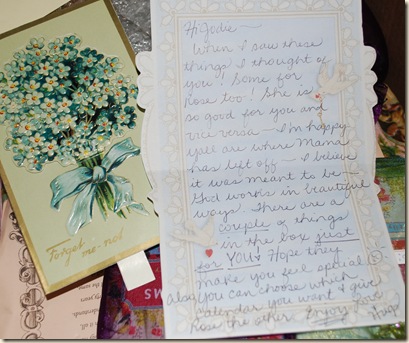 Hi Jodie~
When I saw these
things I thought of
you! Some for
Rose too! She is
so good for you and
vice versa~ I'm happy
yall are where Mama
has left off~ I believe
it was meant to be~
God works in beautiful
ways. There are a
couple of things
in the box just
for YOU! Hope they
make you feel special
Also, you can choose which
calendar you want & give
Rose the other. Enjoy! Love
Forget
me-not